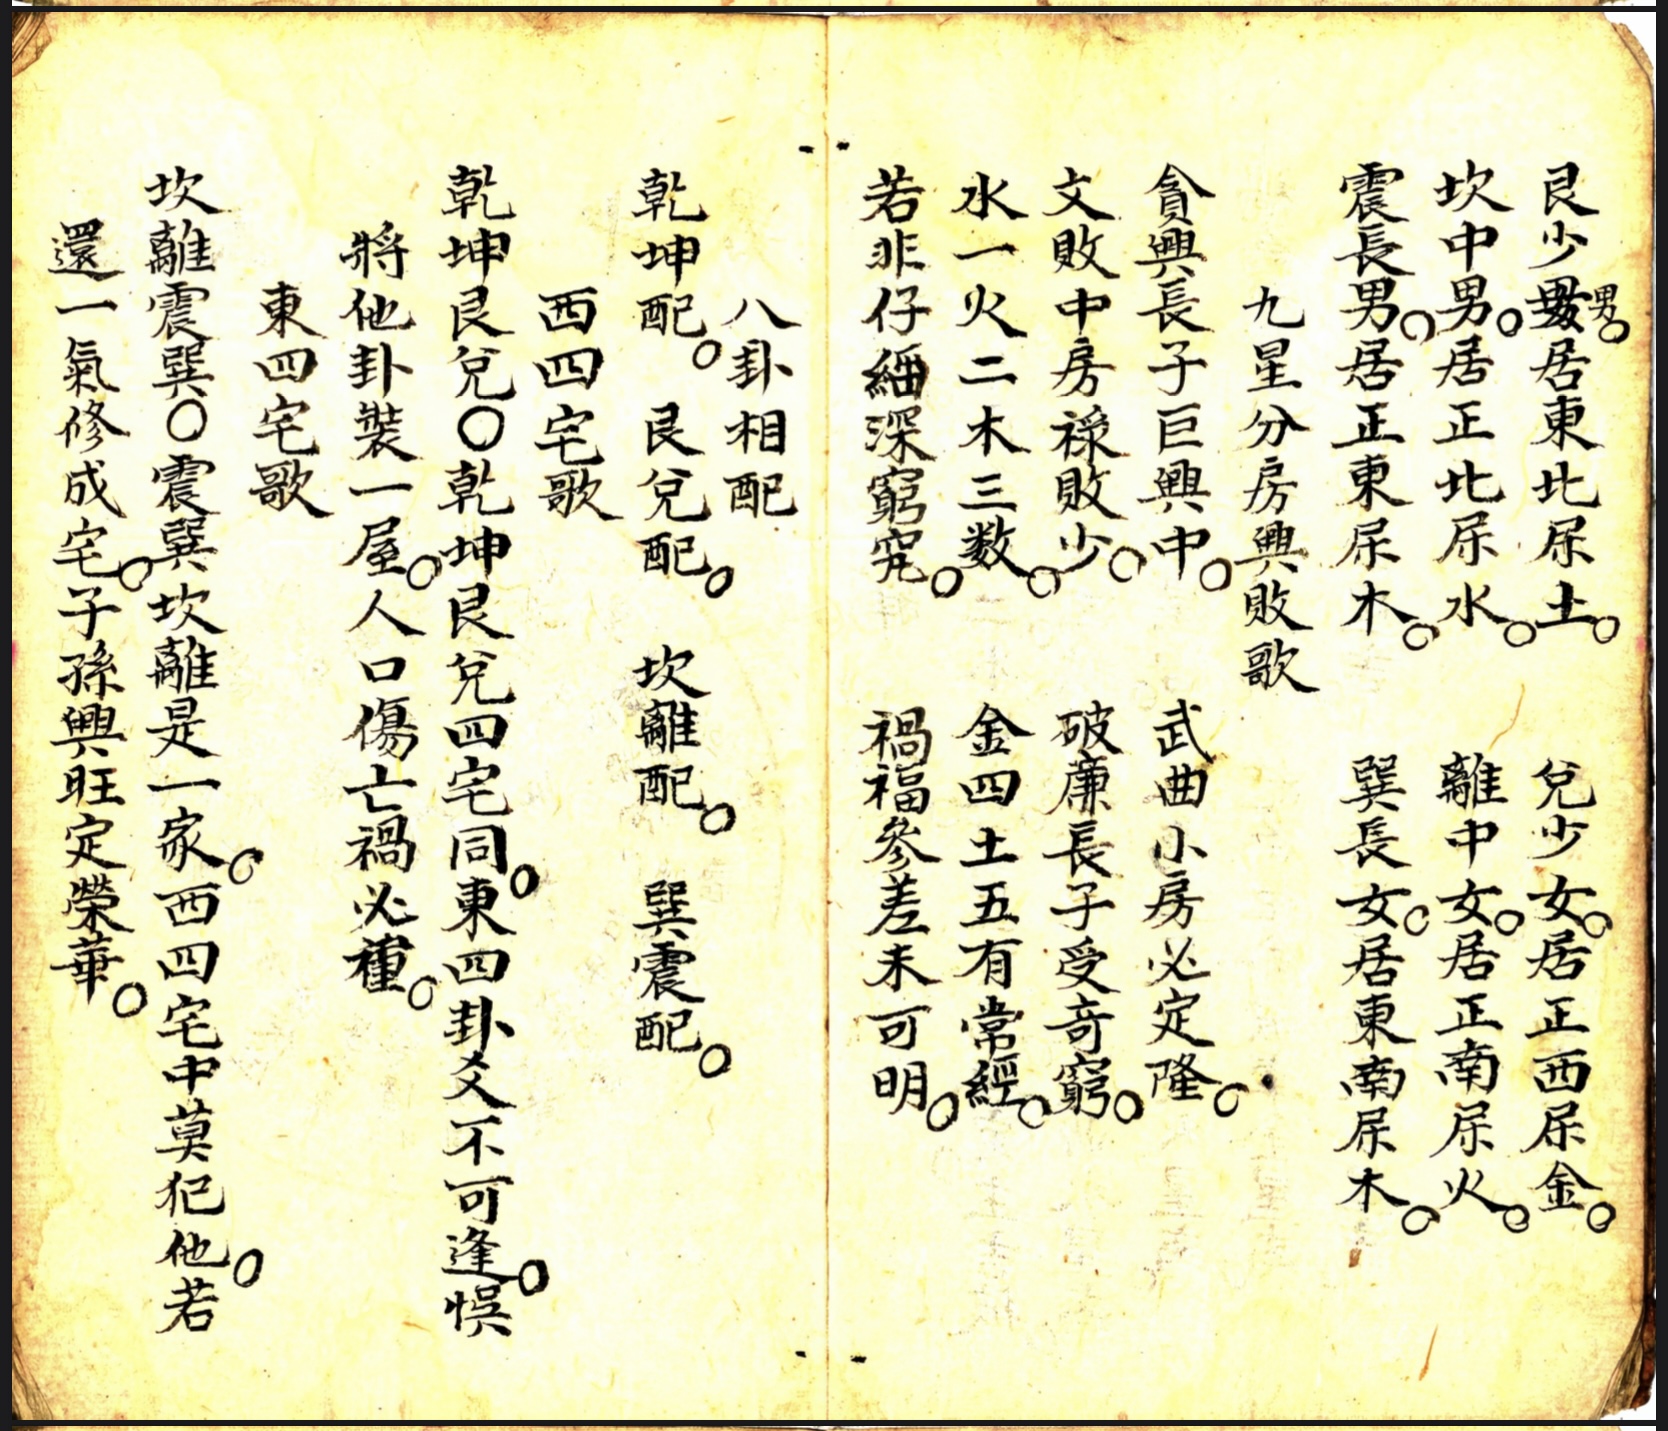 艮少男居東北屎土○ 兌少女○居正西屎金○
坎中男○居正北屎水○ 離中女○居正南屎火○
震長男○居正東屎木○ 巽長女○居東南屎木○
九星分房興敗歌
貪興長子巨興中○ 武曲小房必定隆○
文敗中房祿敗少○ 破廉長子受奇窮○
水一火二木三数○ 金四土五有常經○
若非仔細深窮究○ 禍福參差未可明○
八卦相配
乾坤配○ 艮兌配○ 坎離配○ 巽震配○
西四宅歌
乾坤艮兌○乾坤艮兌四宅同○東四卦爻不可逢○悞
將他卦裝一屋○人口傷亡禍必種○
東四宅歌
坎離震巽○震巽坎離是一家○西四宅中莫犯他○若
還一氣修成宅○子孫興旺定榮華○